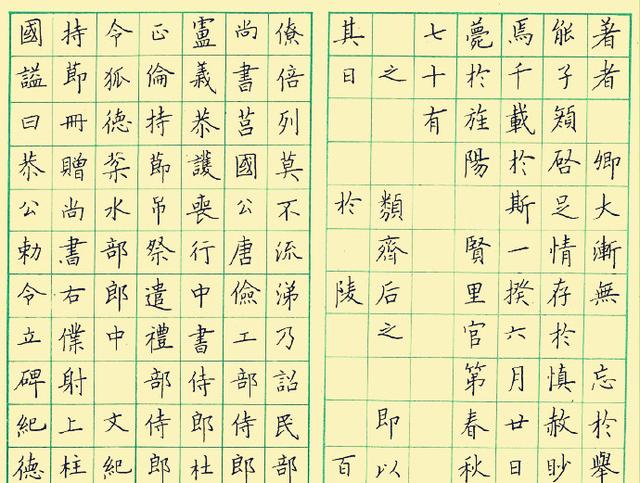 著者卿大漸無忘於舉
能子啓足情存於慎赦眇
焉千載於斯一揆六月廿日
薨於旌陽賢里官第春秋
七十有
之類齊后之即以
其日於陵百
僚倍列莫不流涕乃詔民部
尚書莒國公唐儉工部侍郎
盧義恭護喪行中書侍郎杜
正倫持節吊祭遣禮部侍郎
令狐德棻水部郎中文紀
持節冊贈尚書右僕射上柱
國謚曰恭公勅令立碑紀德